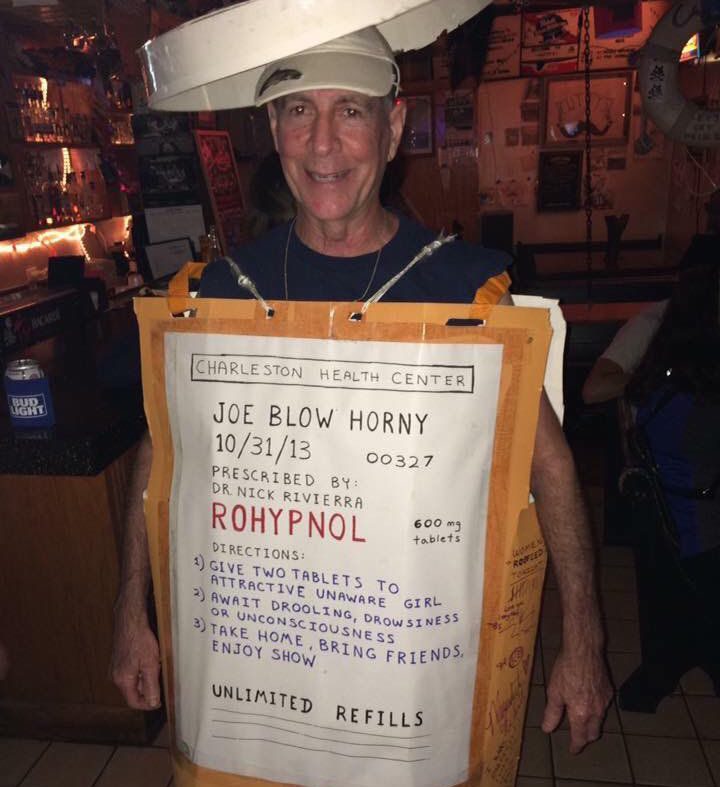 CHARLESTON HEALTH CENTER
JOE BLOW HORNY
10/31/13 00327
PRESCRIBED BY:
DR. NICK RIVIERRA
ROHYPNOL
600 mg
tablets
DIRECTIONS:
1) GIVE TWO TABLETS TO
ATTRACTIVE UNAWARE GIRL
2) AWAIT DROOLING, DROWSINESS
OR UNCONSCIOUSNESS
3) TAKE HOME, BRING FRIENDS,
ENJOY SHOW
UNLIMITED REFILLS
BUD
LIGHT
BACARDI
WOMEN
ROOFEED